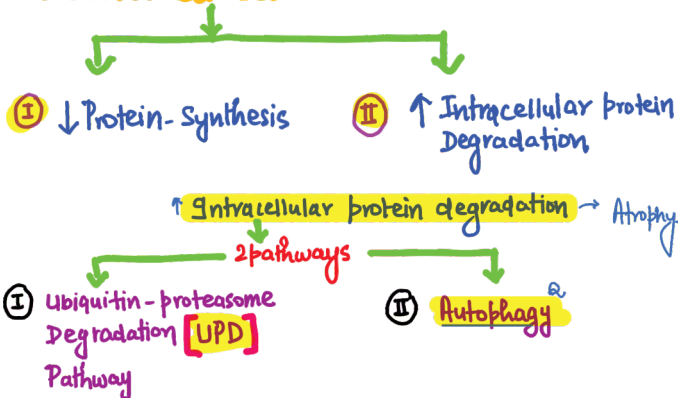 I ↓ Protein-Synthesis
II ↑ Intracellular protein
Degradation
↑ Intracellular protein degradation → Atrophy
2 pathways
I Ubiquitin-proteasome
Degradation [UPD]
Pathway
II Autophagy Q